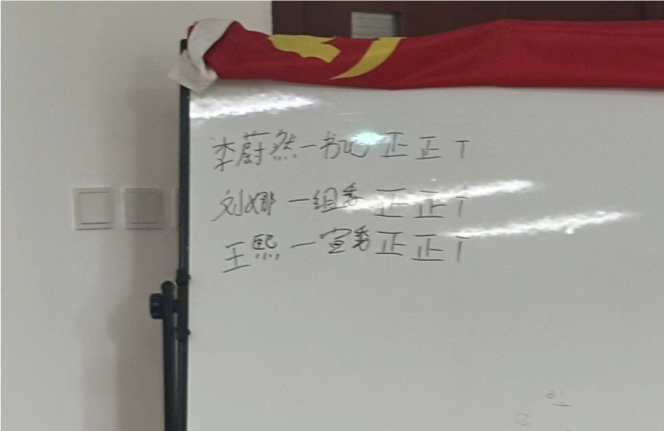 李蔚然一书记 正正丅
刘娜 一组委 正正丅
王熙 一宣委 正正丅